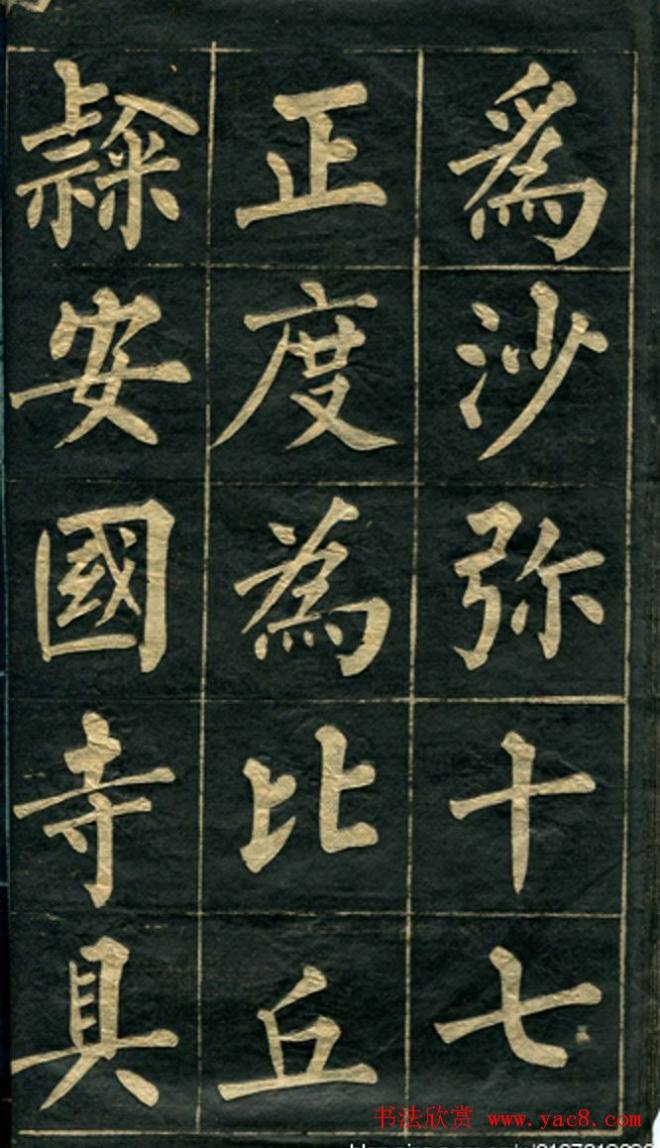 為沙弥十七
正度為比丘
隷安國寺具
书法欣赏 www.yac8.com